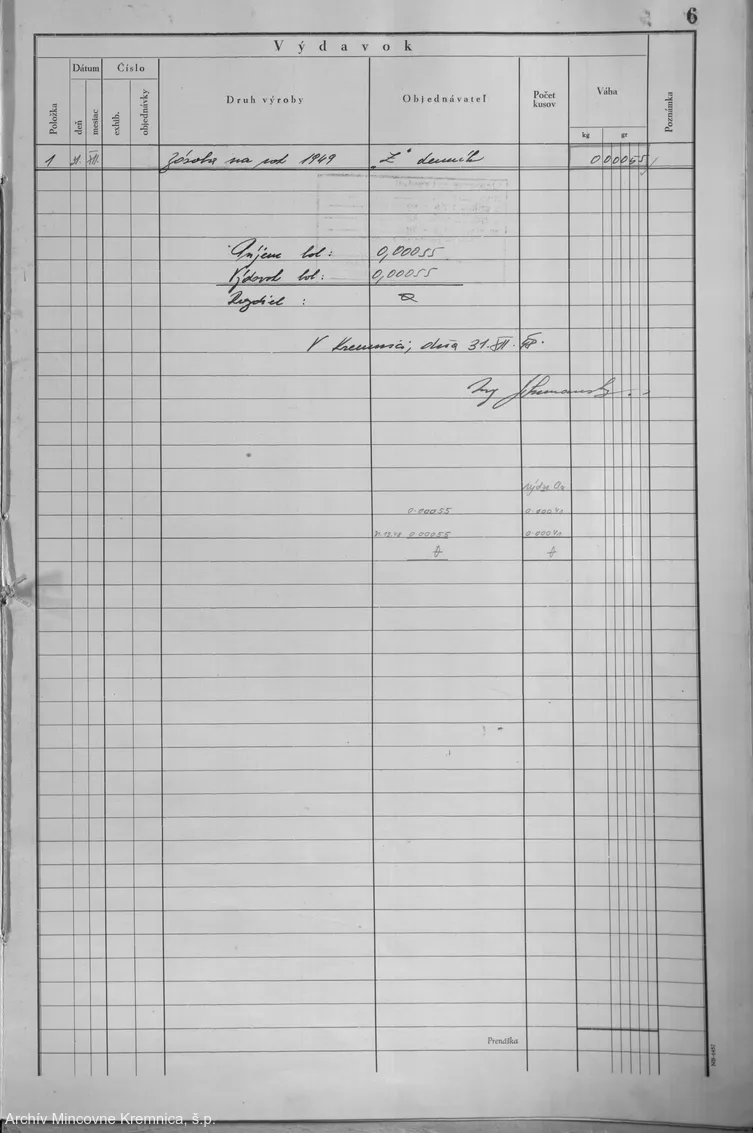 6
Výdavok
Položka
Dátum
deň
mesiac
Číslo
exhib.
objednávky
Druh výroby
Objednávateľ
Počet kusov
Váha
kg
gr
Poznámka
1 31. XII. Zásoba na rok 1949 „Z" denník 0 00055
Príjem bol: 0,00055
Výdavok bol: 0,00055
Rozdiel :
V Kremnici, dňa 31. XII. 48.
Ing
0.00055
31.12.48 0.00055
Prenáška
Archív Mincovne Kremnica, š.p.